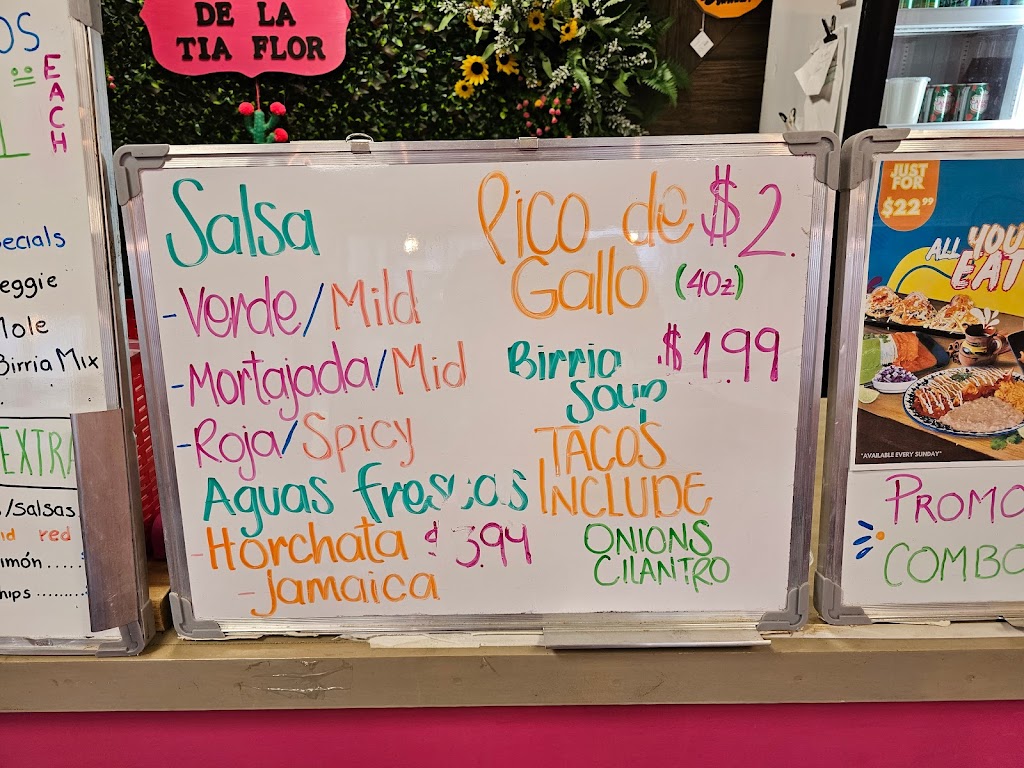 DE LA
TIA FLOR
OS
EACH
ecials
eggie
Mole
Birria Mix
EXTRA
s/Salsas
red
imón .....
hips .........
Salsa
- Verde/Mild
- Mortajada/Mid
- Roja/Spicy
Aguas frescas
- Horchata $3.94
- Jamaica
Pico de $2.
Gallo (4oz)
Birria $1.99
Soup
TACOS
INCLUDE
ONIONS
CILANTRO
JUST
FOR
$22⁹⁹
ALL YOU
EAT
*AVAILABLE EVERY SUNDAY*
PROMO
COMBO